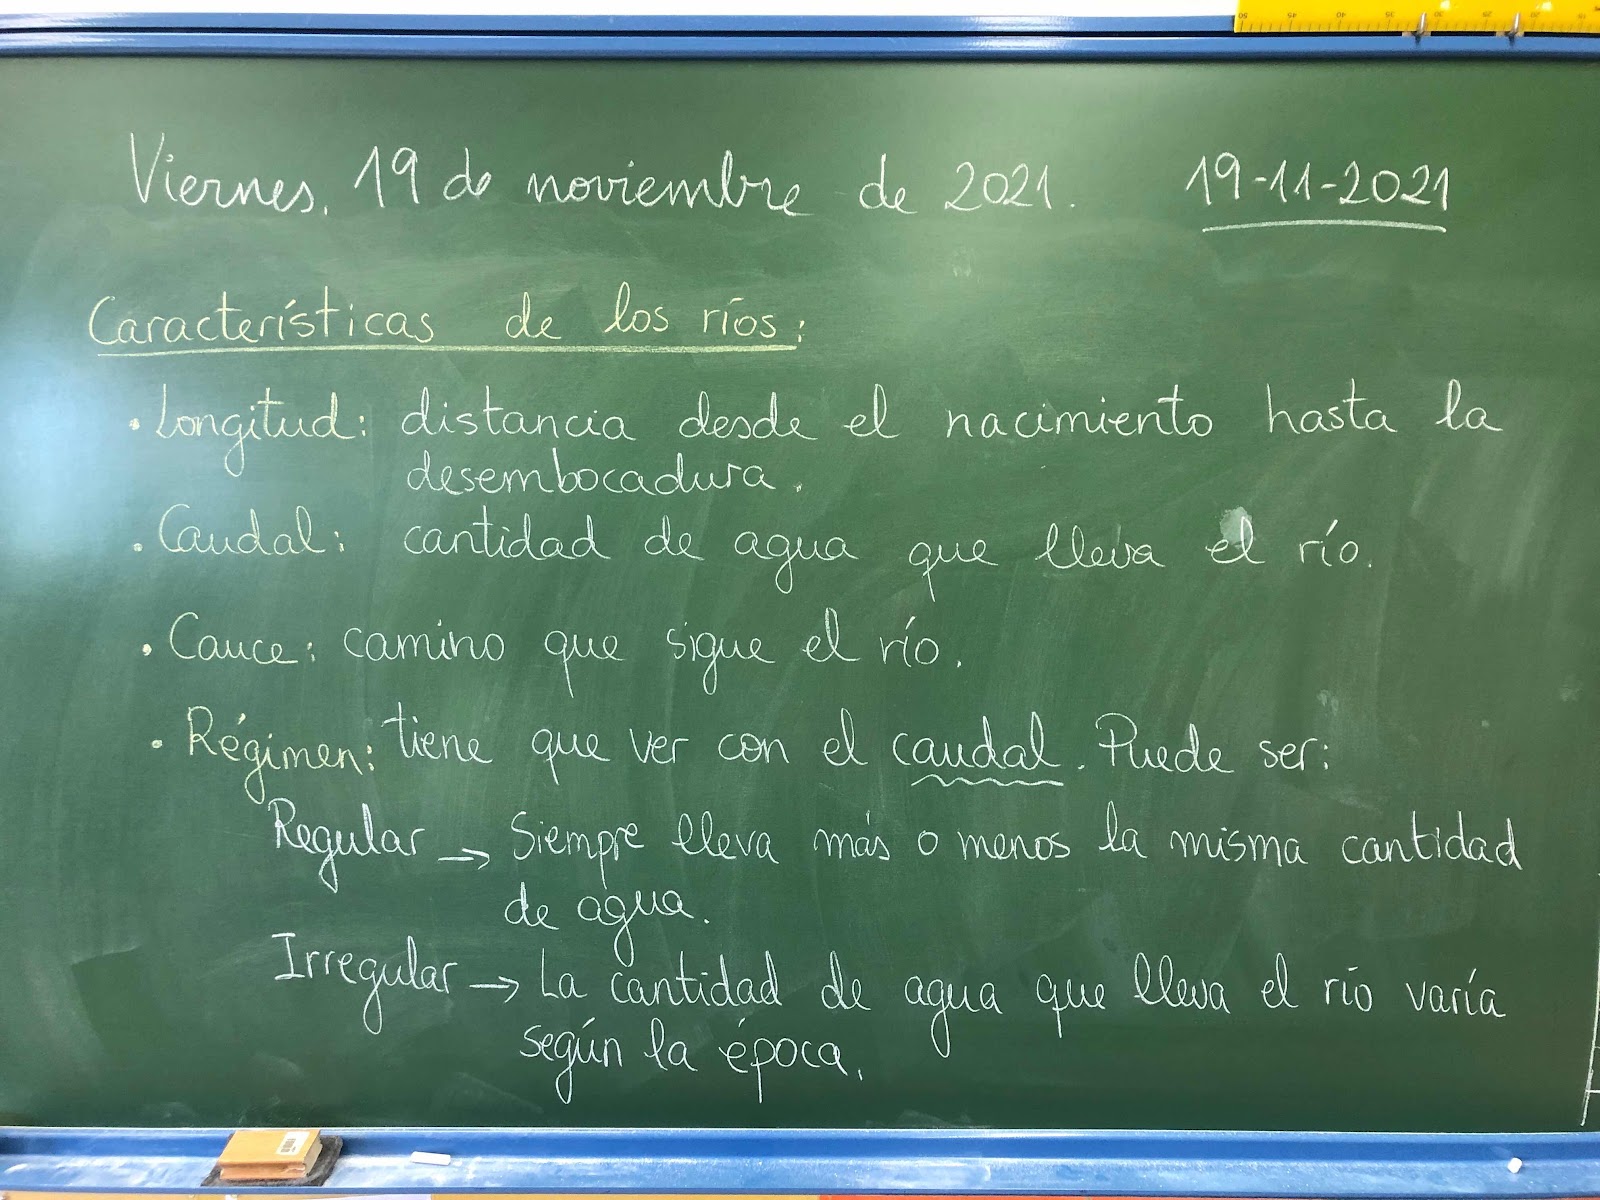 Viernes, 19 de noviembre de 2021. 19-11-2021
Características de los ríos:
· Longitud: distancia desde el nacimiento hasta la
desembocadura.
· Caudal: cantidad de agua que lleva el río.
· Cauce: camino que sigue el río.
· Régimen: tiene que ver con el caudal. Puede ser:
Regular → Siempre lleva más o menos la misma cantidad
de agua.
Irregular → La cantidad de agua que lleva el río varía
según la época.